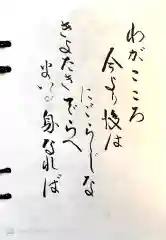 わがこころ
今より後は
にごらじな
きよたきでらへ
まゐる身なれば